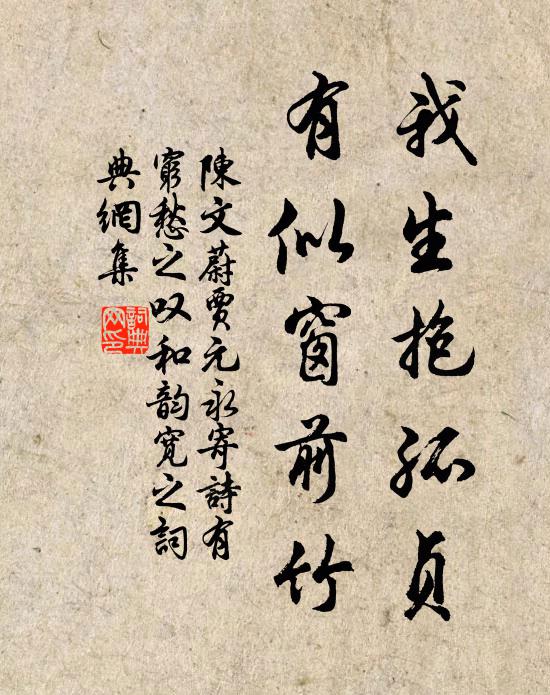 我生抱孤貞
有似窗前竹
陳文蔚賈元永寄詩有
窮愁之叹和韵寬之詞
典網集
詞典網印